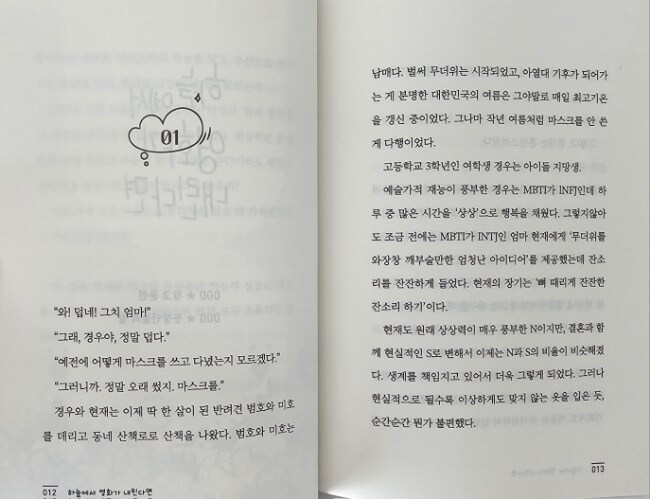 01
“와! 덥네! 그치 엄마!”
“그래, 경우야, 정말 덥다.”
“예전에 어떻게 마스크를 쓰고 다녔는지 모르겠다.”
“그러니까. 정말 오래 썼지. 마스크를.”
경우와 현재는 이제 딱 한 살이 된 반려견 범호와 미호
를 데리고 동네 산책로로 산책을 나왔다. 범호와 미호는
012 하늘에서 영화가 내린다면
남매다. 벌써 무더위는 시작되었고, 아열대 기후가 되어가
는 게 분명한 대한민국의 여름은 그야말로 매일 최고기온
을 갱신 중이었다. 그나마 작년 여름처럼 마스크를 안 쓴
게 다행이었다.
고등학교 3학년인 여학생 경우는 아이돌 지망생.
예술가적 재능이 풍부한 경우는 MBTI가 INFJ인데 하
루 중 많은 시간을 ‘상상’으로 행복을 채웠다. 그렇지않아
도 조금 전에는 MBTI가 INTJ인 엄마 현재에게 ‘무더위를
와장창 깨부술만한 엄청난 아이디어’를 제공했는데 잔소
리를 잔잔하게 들었다. 현재의 장기는 ‘뼈 때리게 잔잔한
잔소리 하기’이다.
현재도 원래 상상력이 매우 풍부한 N이지만, 결혼과 함
께 현실적인 S로 변해서 이제는 N과 S의 비율이 비슷해졌
다. 생계를 책임지고 있어서 더욱 그렇게 되었다. 그러나
현실적으로 될수록 이상하게도 맞지 않는 옷을 입은 듯,
순간순간 뭔가 불편했다.
013